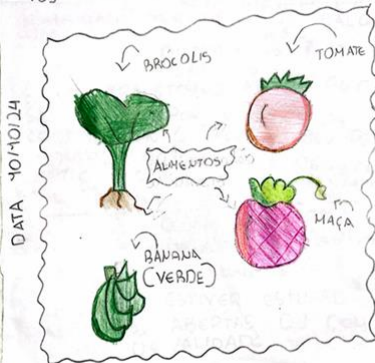 DATA 10/10/24
BRÓCOLIS
TOMATE
ALIMENTOS
MAÇA
BANANA
(VERDE)